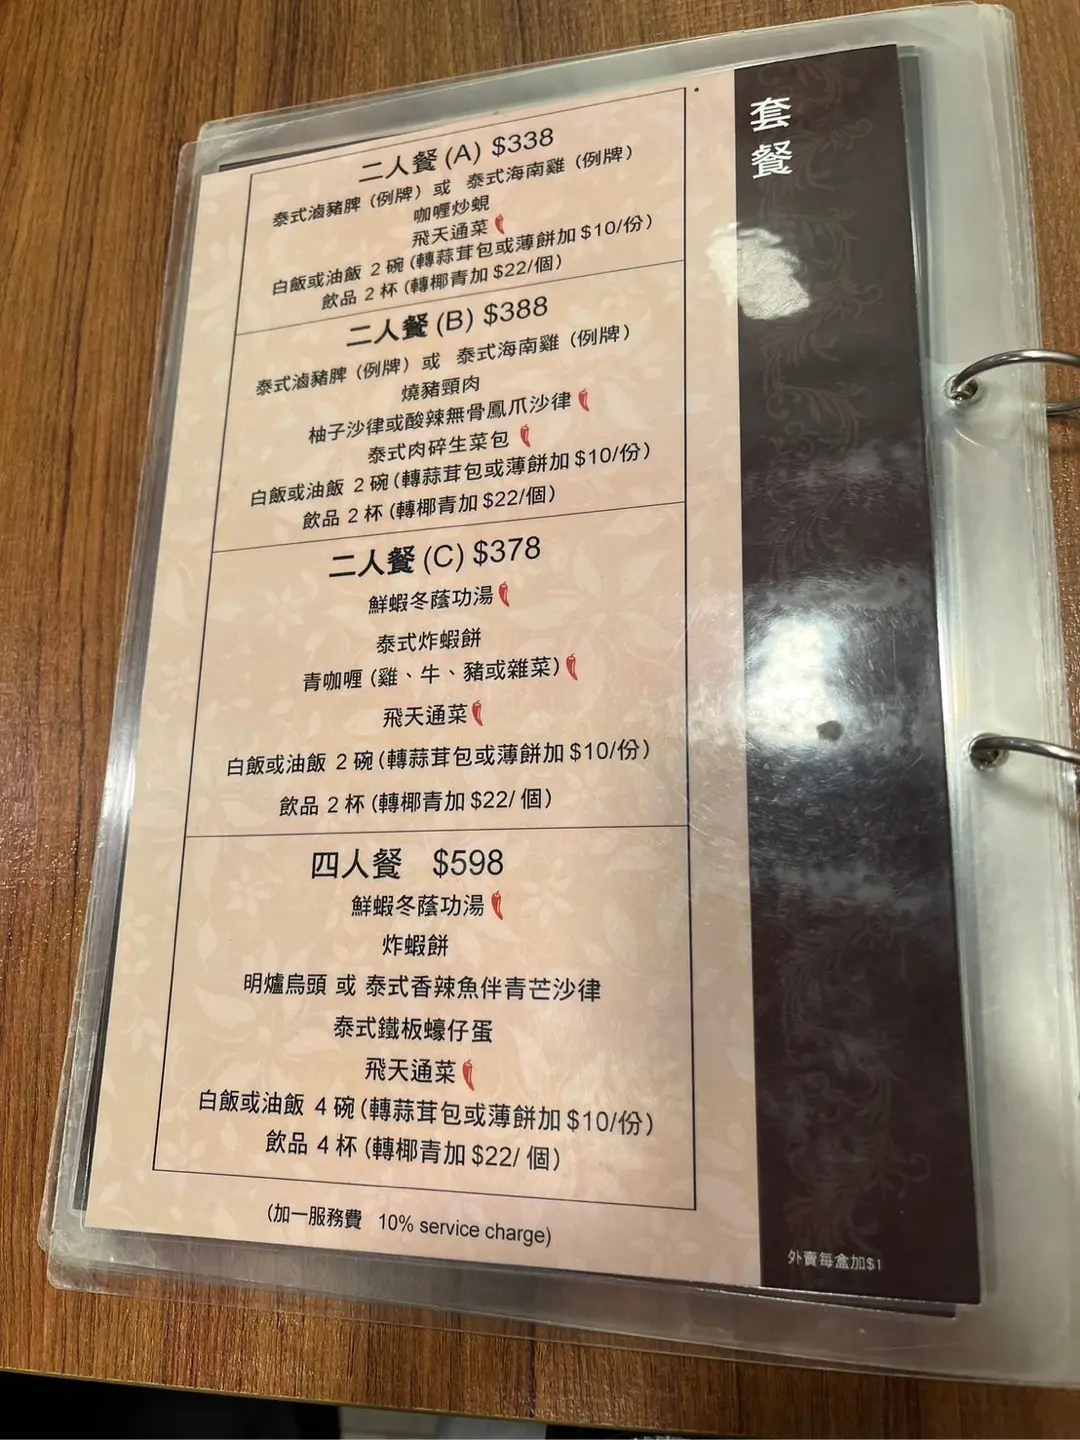 套餐
二人餐 (A) $338
泰式滷豬脾 (例牌) 或 泰式海南雞 (例牌)
咖喱炒蜆
飛天通菜
白飯或油飯 2 碗 (轉蒜茸包或薄餅加 $10/份)
飲品 2 杯 (轉椰青加 $22/個)
二人餐 (B) $388
泰式滷豬脾 (例牌) 或 泰式海南雞 (例牌)
燒豬頸肉
柚子沙律或酸辣無骨鳳爪沙律
泰式肉碎生菜包
白飯或油飯 2 碗 (轉蒜茸包或薄餅加 $10/份)
飲品 2 杯 (轉椰青加 $22/個)
二人餐 (C) $378
鮮蝦冬蔭功湯
泰式炸蝦餅
青咖喱 (雞、牛、豬或雜菜)
飛天通菜
白飯或油飯 2 碗 (轉蒜茸包或薄餅加 $10/份)
飲品 2 杯 (轉椰青加 $22/ 個)
四人餐 $598
鮮蝦冬蔭功湯
炸蝦餅
明爐烏頭 或 泰式香辣魚伴青芒沙律
泰式鐵板蠔仔蛋
飛天通菜
白飯或油飯 4 碗 (轉蒜茸包或薄餅加 $10/份)
飲品 4 杯 (轉椰青加 $22/ 個)
(加一服務費 10% service charge)
外賣每盒加$1